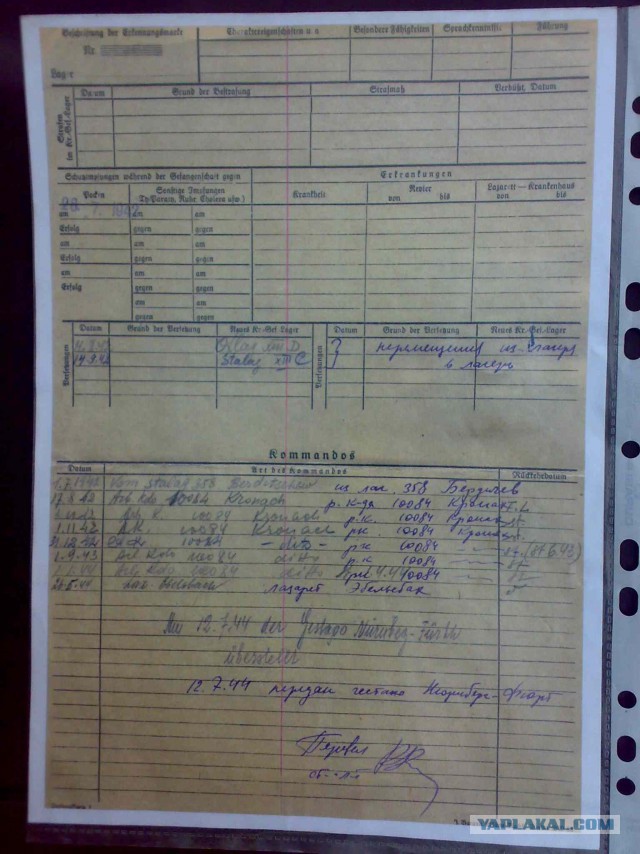 Beschriftung der Erkennungsmarke
Nr.
Lager
Charaktereigenschaften u a
Besondere Fähigkeiten
Sprachkenntnisse
Führung
Strafen im Kr.-Gef.-Lager
Datum
Grund der Bestrafung
Strafmaß
Verbüßt, Datum
Schutzimpfungen während der Gefangenschaft gegen
Erkrankungen
Pocken
Sonstige Impfungen
(Ty.Paratyn, Ruhr Cholera usw.)
Krankheit
Revier
von bis
Lazarett — Krankenhaus
von bis
28.7.1942
am am am
Erfolg gegen gegen
am am am
Erfolg gegen gegen
am am am
Erfolg gegen gegen
am am
gegen gegen
Versetzungen
Datum
Grund der Versetzung
Neues Kr.-Gef.Lager
Versetzungen
Datum
Grund der Versetzung
Neues Kr.-Gef.-Lager
перемещения из лагеря
Stalag XIII C
в лагерь
Kommandos
Datum
Art des Kommandos
Rückkehrdatum
1.7.1942 Vom Stalag 358 Berditschew из лаг. 358 Бердичев
17.8.42 Arb Kdo 10084 Kronach р.к-да 10084 Кронах
10084 Kronach р.к. 10084 Кронах
1.11.42 10084 Kronach рк. 10084
31.12.42 10084 - dito - р.к 10084
1.9.43 Arb Kdo 10084 dito р.к 10084
Arb Kdo 10084 dito 10084
Laz. Ebelsbach лазарет Эбельсбах
Am 12.7.44 der Gestapo Nürnberg-Fürth
überstellt
12.7.44 передан гестапо Нюрнберг-Фюрт
Перевел
YAPLAKAL.COM